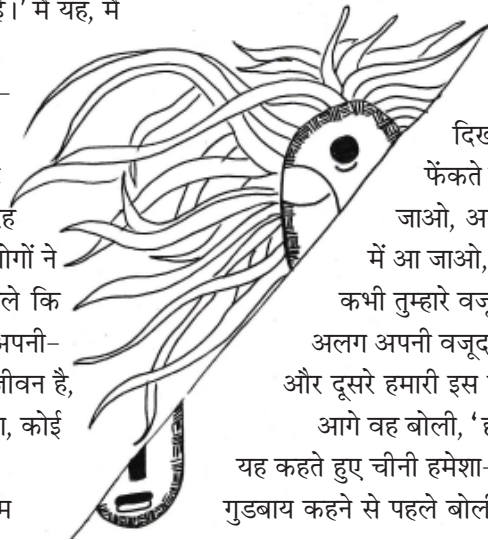 ई।’ में यह, में
–
ह
ोगों ने
ले कि
अपनी–
ीवन है,
ा, कोई
म
दिख
फेंकते
जाओ, अ
में आ जाओ,
कभी तुम्हारे वजू
अलग अपनी वजूद
और दूसरे हमारी इस
आगे वह बोली, ‘ह
यह कहते हुए चीनी हमेशा–
गुडबाय कहने से पहले बोली